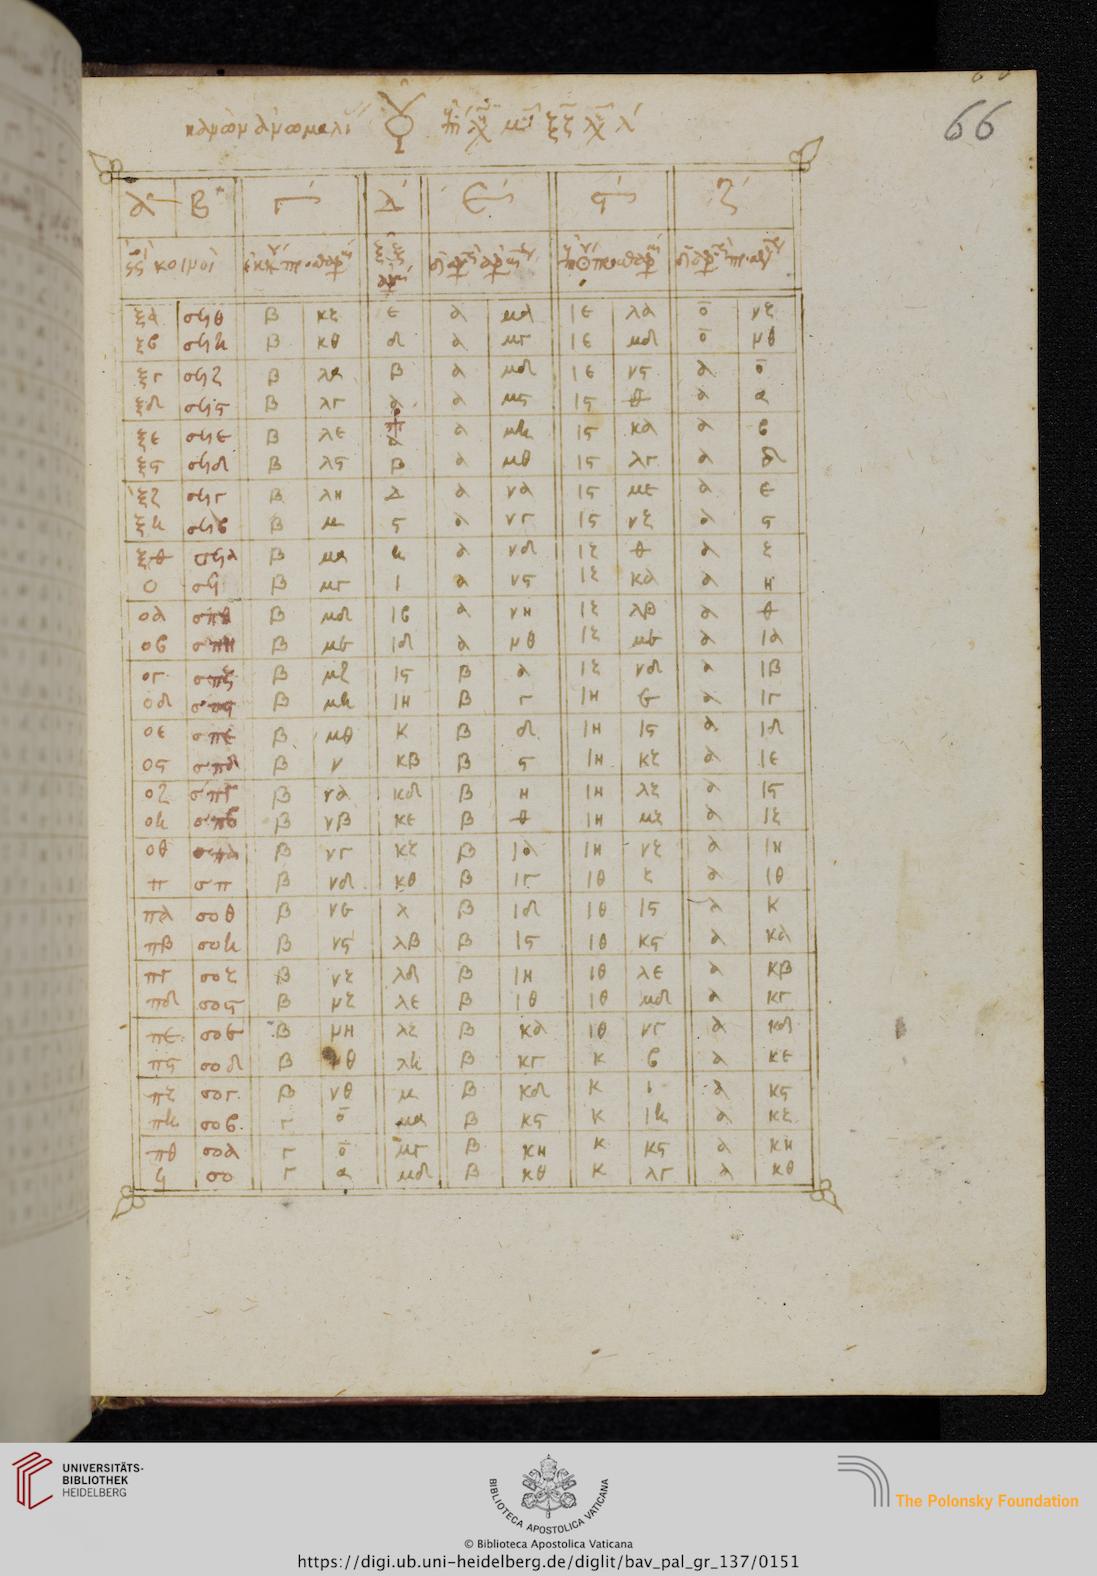 66
α β γ δ ε ϛ ζ
κοινοὶ
ξα σϟθ β κζ ε α μα ιε λα ο νζ
ξβ σϟη β κθ δ α μγ ιε μδ ο νθ
ξγ σϟζ β λα β α μδ ιε νϛ α ο
ξδ σϟϛ β λγ α α μϛ ιϛ θ α α
ξε σϟε β λε α α μη ιϛ κα α β
ξϛ σϟδ β λϛ β α μθ ιϛ λγ α δ
ξζ σϟγ β λη δ α να ιϛ με α ε
ξη σϟβ β μ ϛ α νγ ιϛ νζ α ϛ
ξθ σϟα β μα η α νδ ιζ θ α ζ
ο σϟ β μγ ι α νϛ ιζ κα α η
οα σπθ β μδ ιβ α νη ιζ λβ α θ
οβ σπη β με ιδ α νθ ιζ με α ια
ογ σπζ β μζ ιϛ β α ιζ νδ α ιβ
οδ σπϛ β μη ιη β γ ιη ε α ιγ
οε σπε β μθ κ β δ ιη ιϛ α ιδ
οϛ σπδ β ν κβ β ϛ ιη κζ α ιε
οζ σπγ β να κδ β η ιη λζ α ιϛ
οη σπβ β νβ κε β θ ιη μζ α ιζ
οθ σπα β νγ κζ β ια ιη νζ α ιη
π σπ β νδ κθ β ιγ ιθ ζ α ιθ
πα σοθ β νε λ β ιδ ιθ ιϛ α κ
πβ σοη β νϛ λβ β ιϛ ιθ κϛ α κα
πγ σοζ β νζ λδ β ιη ιθ λε α κβ
πδ σοϛ β νζ λε β ιθ ιθ μδ α κγ
πε σοε β νη λζ β κα ιθ νγ α κδ
πϛ σοδ β νθ λη β κγ κ β α κε
πζ σογ β νθ μ β κδ κ ι α κϛ
πη σοβ γ ο μα β κϛ κ ιη α κζ
πθ σοα γ ο μγ β κη κ κϛ α κη
ϟ σο γ α μδ β κθ κ λγ α κθ
UNIVERSITÄTS-
BIBLIOTHEK
HEIDELBERG
BIBLIOTECA APOSTOLICA VATICANA
The Polonsky Foundation
© Biblioteca Apostolica Vaticana
https://digi.ub.uni-heidelberg.de/diglit/bav_pal_gr_137/0151